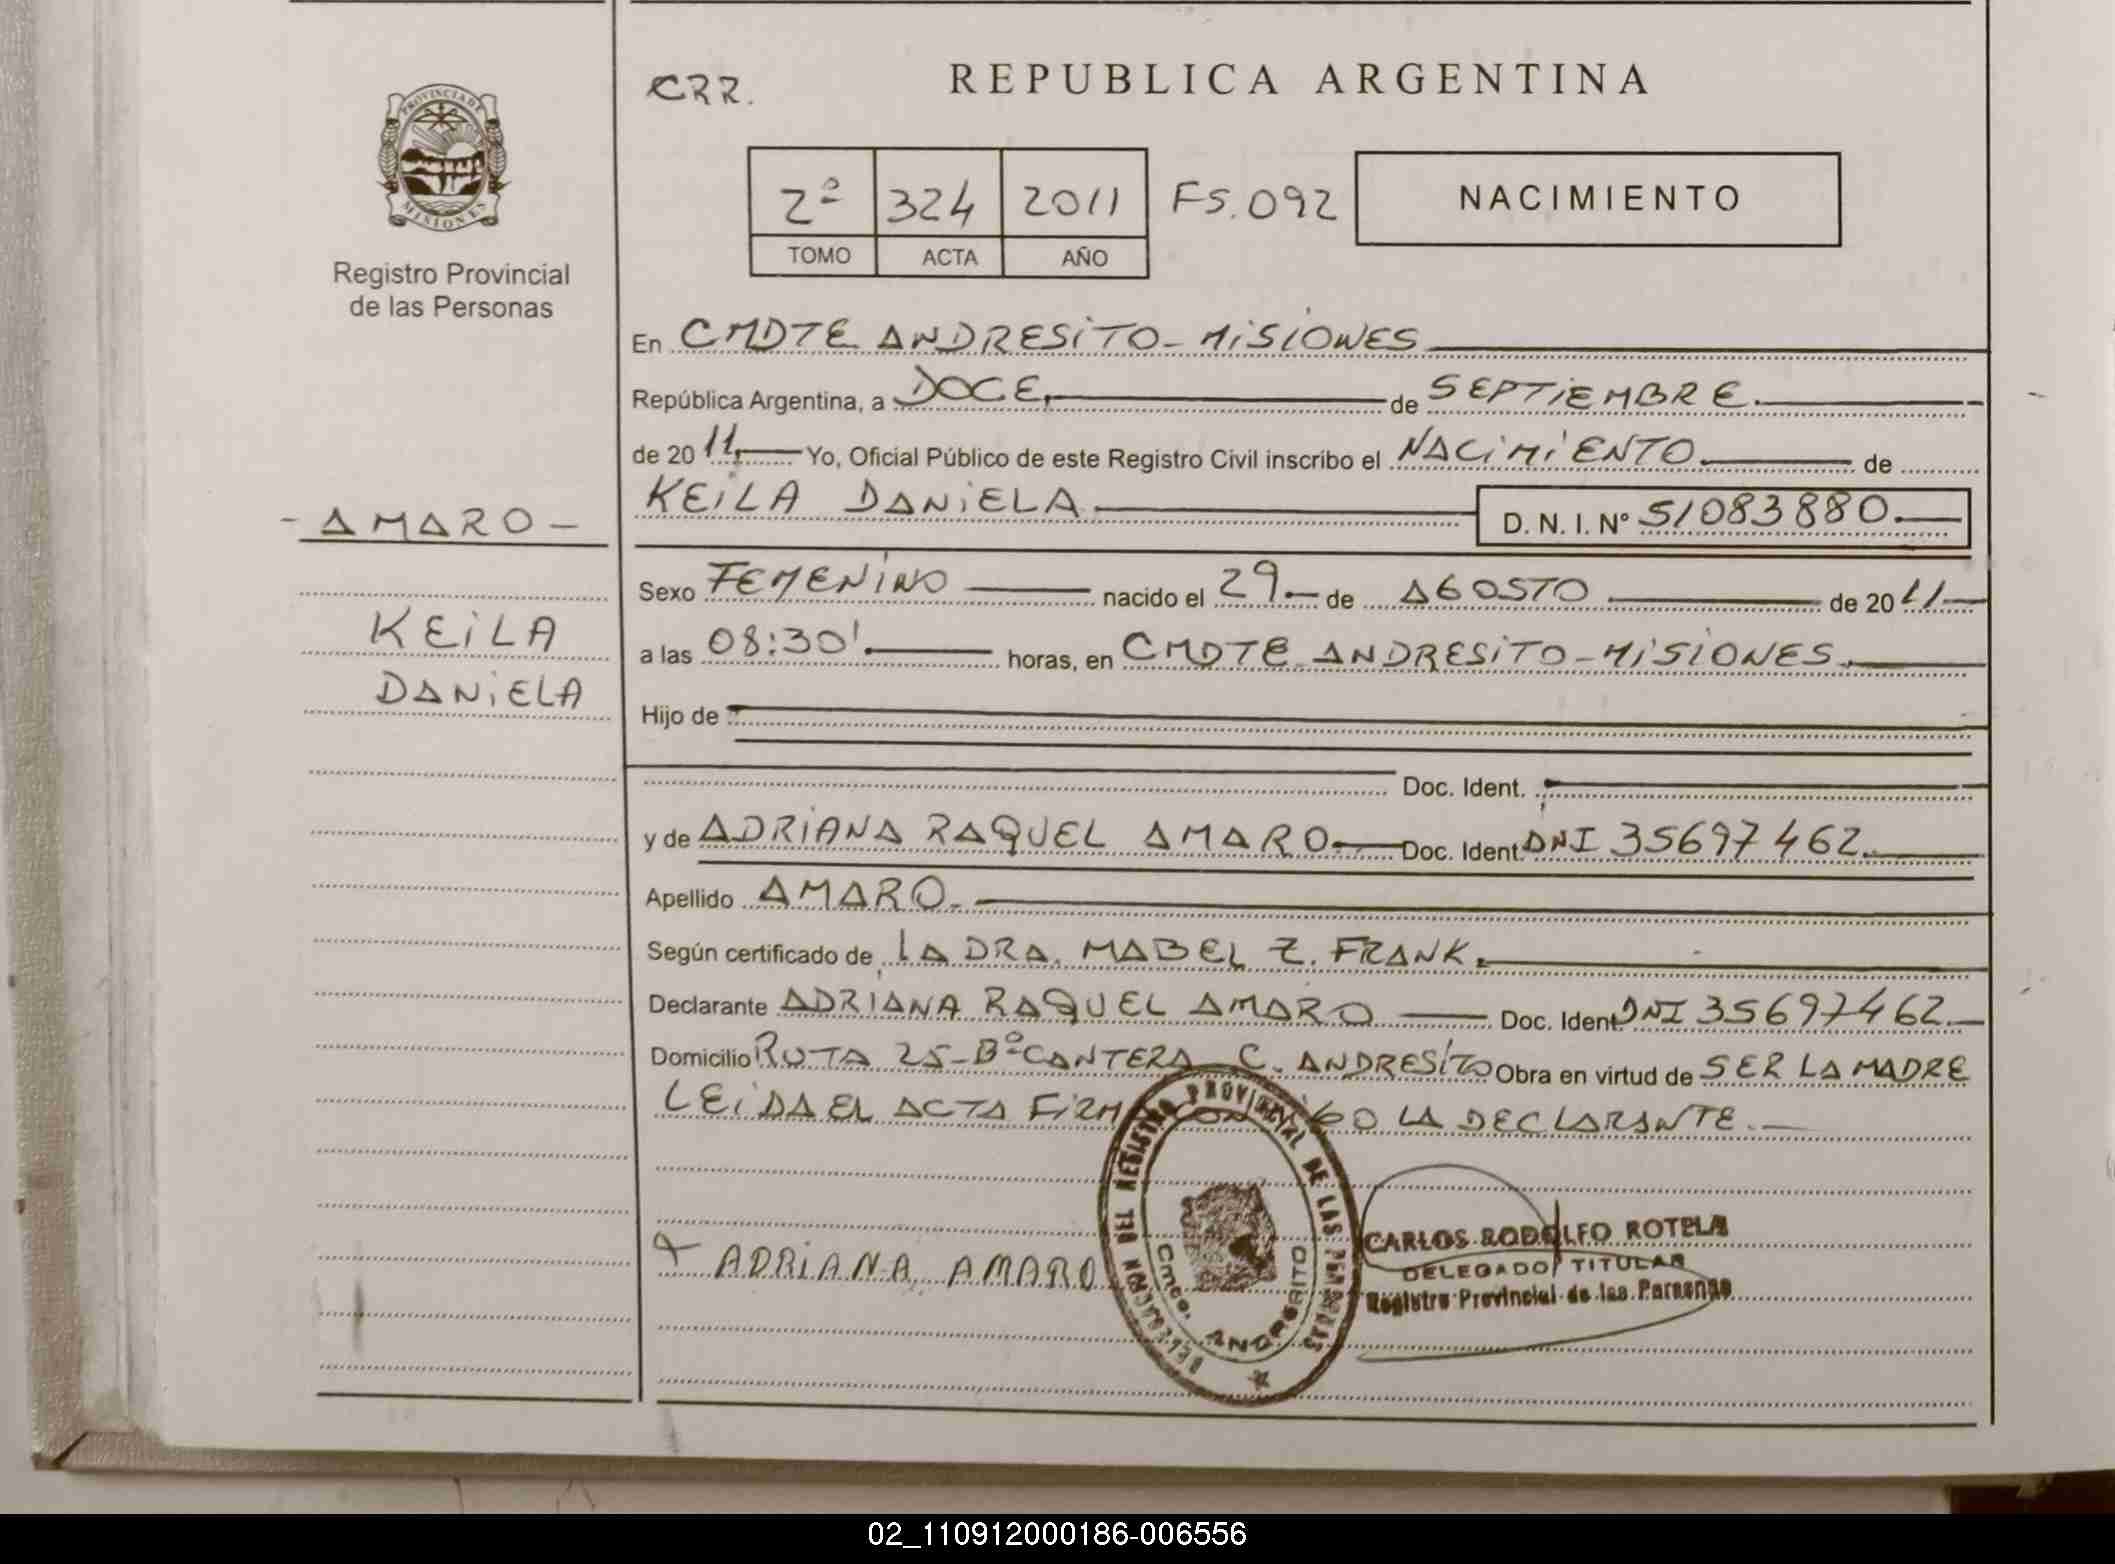 PROVINCIA DE
MISIONES
Registro Provincial
de las Personas
- AMARO -
KEILA
DANIELA
CRR.
REPUBLICA ARGENTINA
2º 324 2011 FS. 092 NACIMIENTO
TOMO ACTA AÑO
En CMDTE ANDRESITO - MISIONES
República Argentina, a DOCE. de SEPTIEMBRE.
de 20 11. Yo, Oficial Público de este Registro Civil inscribo el NACIMIENTO de
KEILA DANIELA. D. N. I. Nº 51083880.
Sexo FEMENINO nacido el 29 de AGOSTO de 20 11
a las 08:30'. horas, en CMDTE ANDRESITO - MISIONES.
Hijo de
Doc. Ident.
y de ADRIANA RAQUEL AMARO Doc. Ident. DNI 35697462.
Apellido AMARO.
Según certificado de LA DRA. MABEL Z. FRANK.
Declarante ADRIANA RAQUEL AMARO Doc. Ident DNI 35697462.
Domicilio RUTA 25 - Bº CANTERA - C. ANDRESITO Obra en virtud de SER LA MADRE
LEIDA EL ACTA FIRMA CONMIGO LA DECLARANTE.
ADRIANA AMARO
DELEGACION DEL REGISTRO PROVINCIAL DE LAS PERSONAS
Cmdo. ANDRESITO
CARLOS RODOLFO ROTELA
DELEGADO TITULAR
Registro Provincial de las Personas
02_110912000186-006556